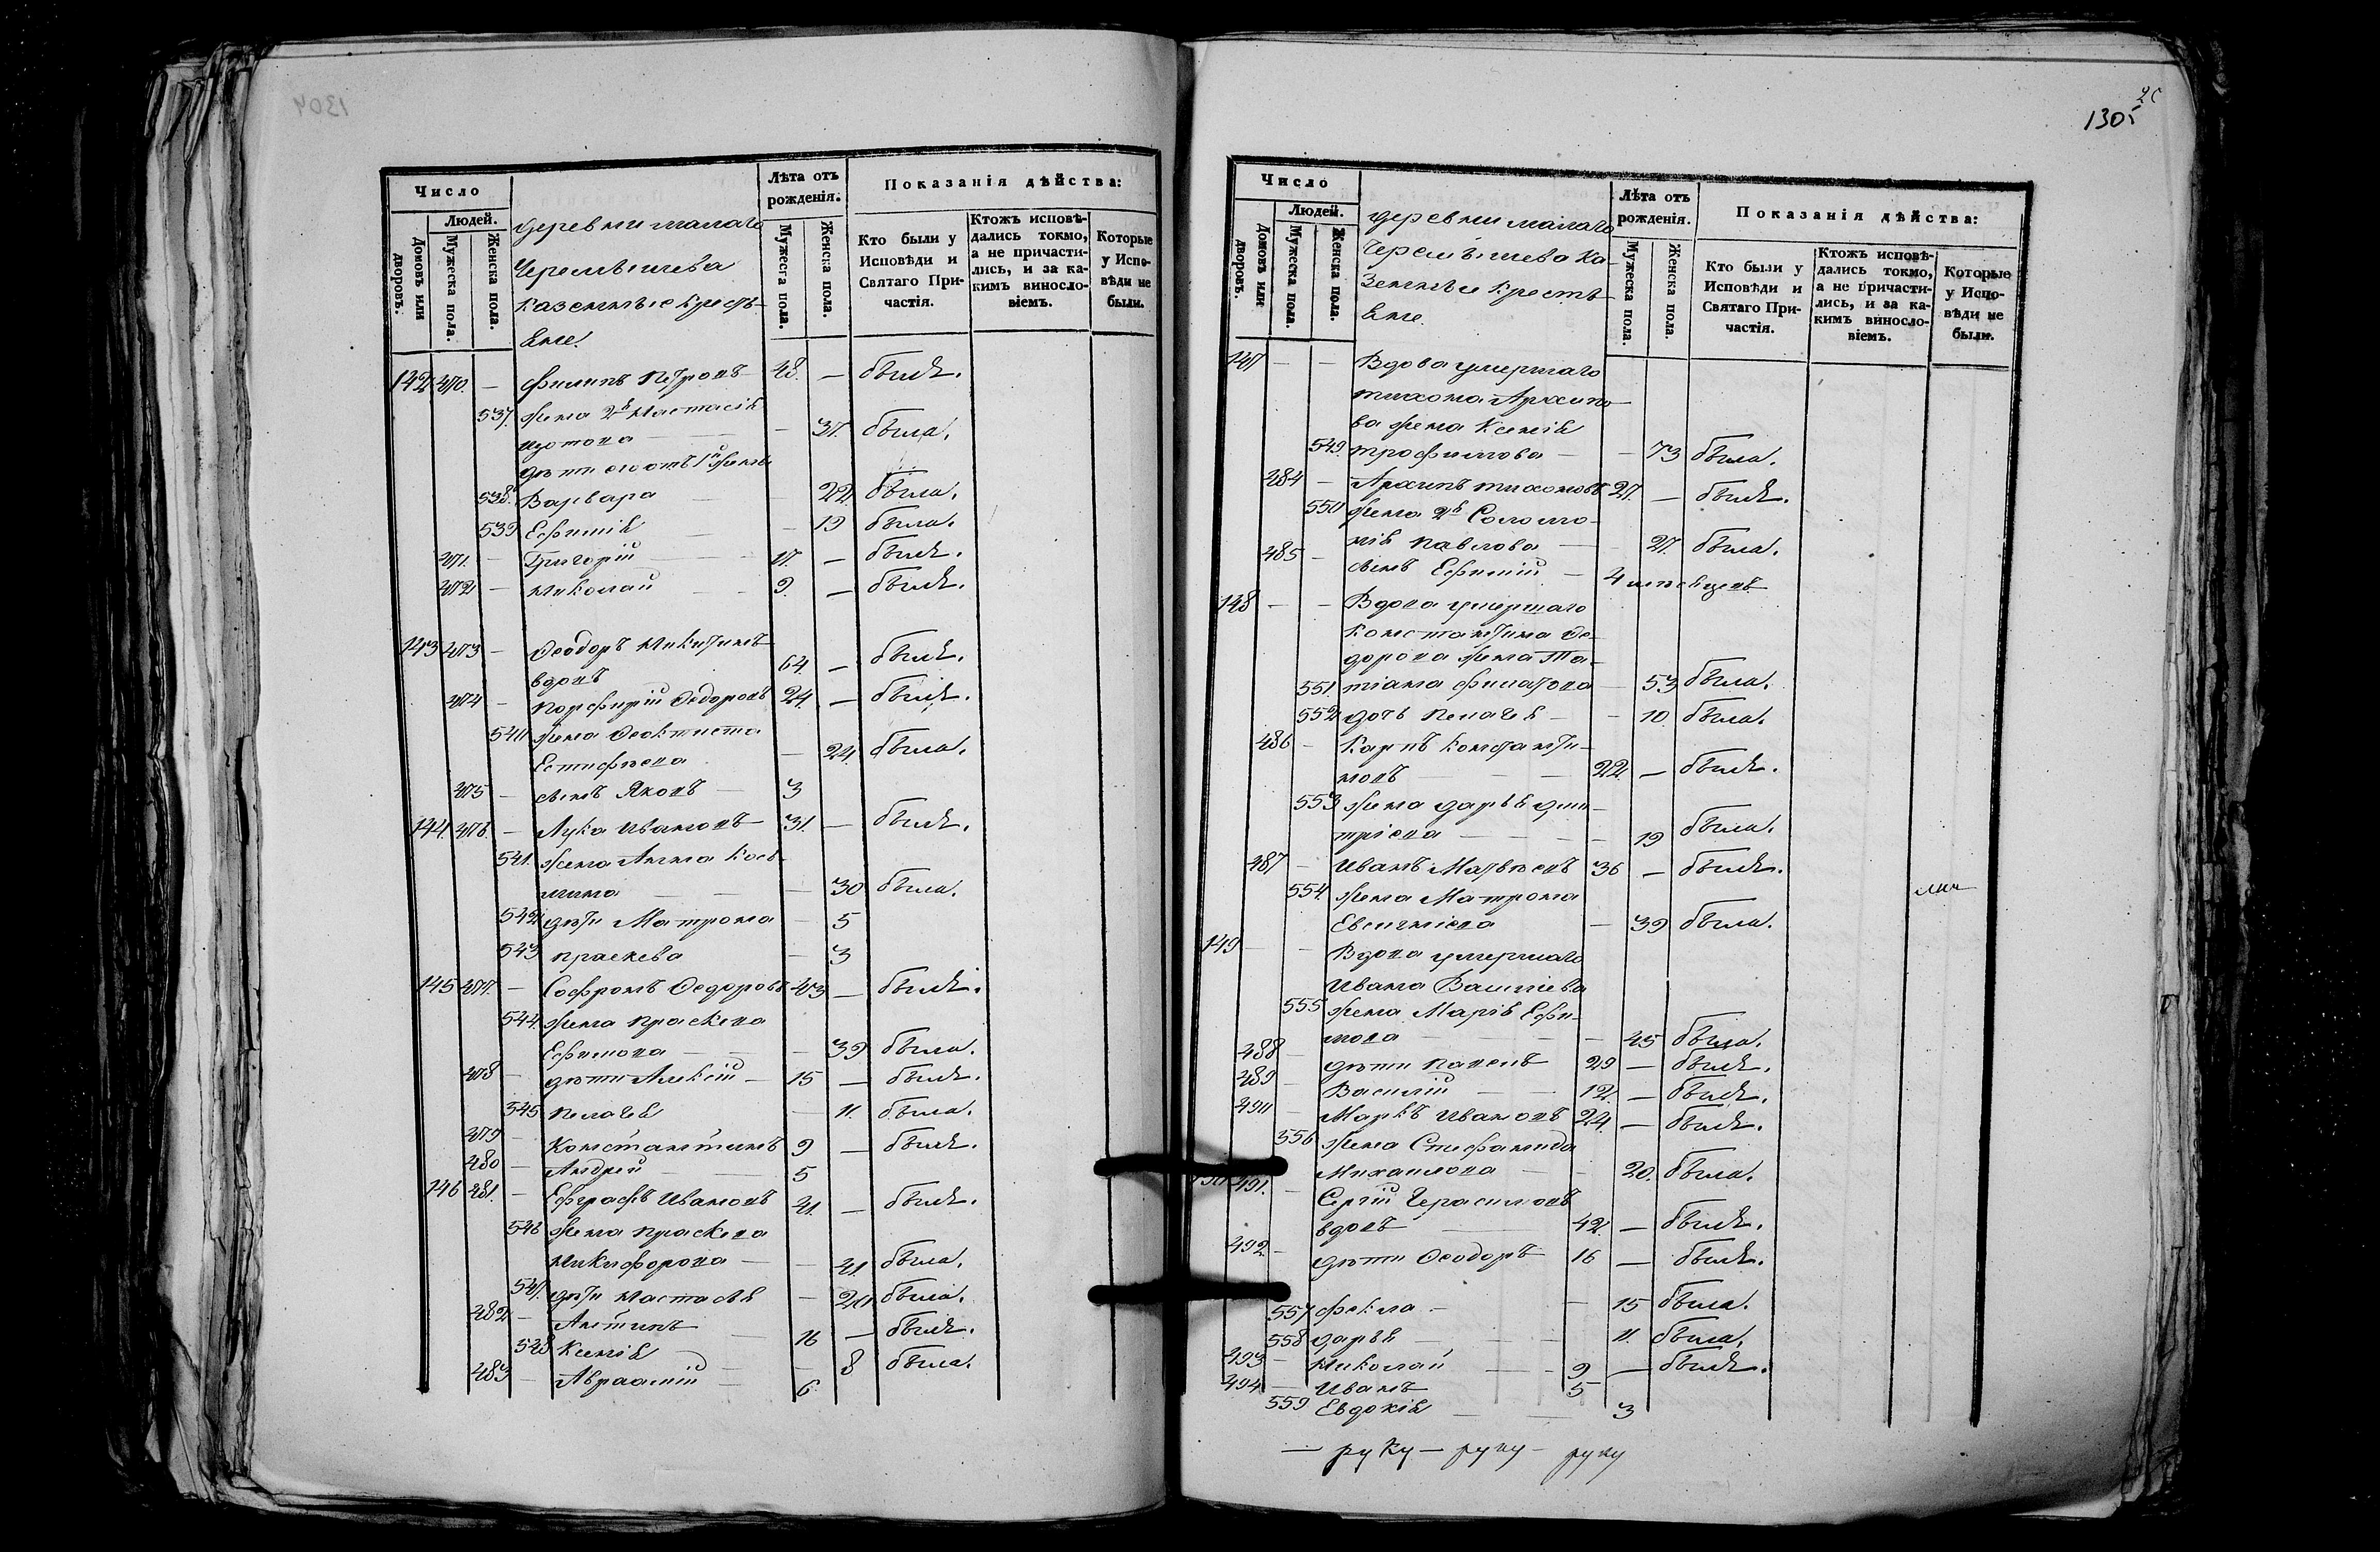 Число
Людей.
Домовъ или дворовъ.
Мужеска пола.
Женска пола.
деревни малаго
Черемѣшева
казенные крестья-
яне.
Лѣта отъ рожденія.
Мужеска пола.
Женска пола.
Показанія дѣйства:
Кто были у Исповѣди и Святаго Причастія.
Ктожъ исповѣдались токмо, а не причастились, и за какимъ винословіемъ.
Которые у Исповѣди не были.
142 470. — Филипъ Петровъ 48. — былъ.
537. жена 2я Настасія
Изотова — 37. была.
дѣти его отъ 1й жены
538. Варвара 22 была.
539 Ефимія — 19 была.
471. — Григорій 17. — былъ.
472 — Николай 9. — былъ.
143 473 — Ѳеодоръ Никитинъ
вдовъ 64. — былъ.
474 — Порфирій Ѳедоровъ 24. — былъ.
540 жена Ѳеоктиста
Естифѣева — 24. была.
475 — сынъ Яковъ — 3
144. 476. — Лука Ивановъ 31. — былъ.
541. жена Анна Козь-
мина — 30 была.
542 дѣти Матрона — 5
543 Праскева — 3
145 477. — Софронъ Ѳедоровъ 43 — былъ.
544. жена Праскева
Ефимова — 39 была.
478 — дѣти Алексій — 15 — былъ.
545 Пелагея — 11. была.
479 — Константинъ 9 — былъ.
480 — Андрей 5
146 481. — Ефграфъ Ивановъ 41. — былъ.
546 жена Праскева
Никифорова — 41. была.
547. дѣти Настасья — 20 была.
482 — Антипъ 16 — былъ.
548 Ксенія — 8 была.
483 — Авраамій — 6
1305
Число
Людей.
Домовъ или дворовъ.
Мужеска пола.
Женска пола.
деревни малаго
Черемѣшева ка-
зенные кресть-
яне.
Лѣта отъ рожденія.
Мужеска пола.
Женска пола.
Показанія дѣйства:
Кто были у Исповѣди и Святаго Причастія.
Ктожъ исповѣдались токмо, а не причастились, и за какимъ винословіемъ.
Которые у Исповѣди не были.
147 — — Вдова умершаго
Тихона Архипо-
ва жена Ксенія
549. Трофимова — — 73 была.
484 — Архипъ Тихоновъ 27. — былъ.
550 жена 2я Соломо-
нія Павлова — 27. была.
485 — сынъ Ефимій — 4
148 — — Вдова умершаго
Константина Ѳе-
дорова жена Та-
551. тіана Филатова — 53 была.
552 дочь Пелагея — — 10. была.
486 — Карпъ Константи-
новъ — 22. — былъ.
553 жена Дарья Дми-
тріева — 19 была.
487 — Иванъ Матвѣевъ 36 — былъ.
554. жена Матрона
Евсигніева — 39 была.
149 — — Вдова умершаго
Ивана Васильева
555 жена Марія Ефи-
мова — 45 была.
488 — дѣти Павелъ 29 — былъ.
489 — Василій — 12. — былъ.
490 — Маркъ Ивановъ 24. — былъ.
556 жена Стефанида
Михаилова — 20. была.
491. — Сергій Герасимовъ
вдовъ — 42. — былъ.
492 — дѣти Ѳеодоръ 16 — былъ.
557 Фекла — — 15 была.
558 Дарья — — 11. была.
493 — Николай — 9 — былъ.
494 — Иванъ 5
559 Евдокія — 3
— руку — руку — руку